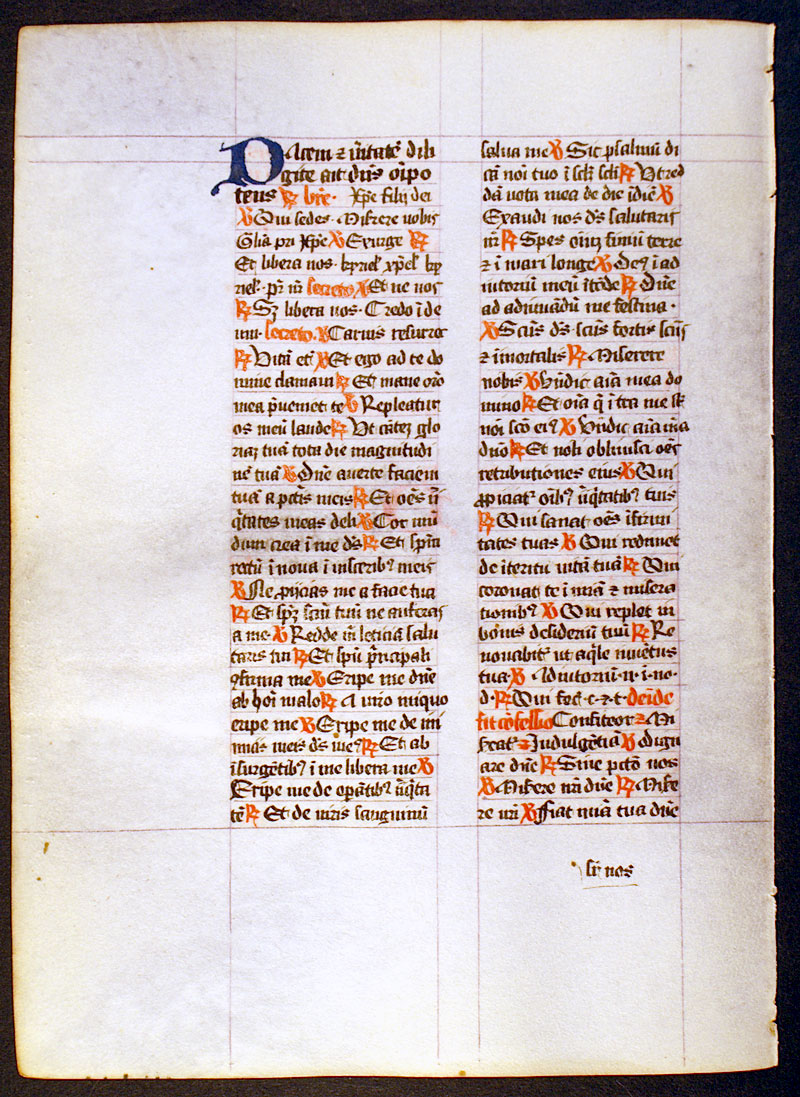 Pacem ⁊ v̄itatē dili
gite ait dn̄s oīpo
tens ℟ br̄e · xp̄e filij dei
℣ Qui sedes · Misere nobis
Gl̄ia pri xp̄e ℣ Exurge ℟
Et libera nos · kyriel̄ xp̄el̄ ky
riel̄ · pr̄ nr̄ secreto ℣ Et ne nos
℟ Sꝫ libera nos · Credo ī de
um · secreto · ℣ Carnis resurrec
℟ Vitā et̄ ℣ Et ego ad te do
mine clamaui ℟ Et mane or̄o
mea p̄ueniet te ℣ Repleatur
os meū laude ℟ Vt cātem glo
riaꝫ tuā tota die magnitudi
nē tuā ℣ Dn̄e auerte faciem
tuā a pctīs meis ℟ Et oēs in̄
q̄tates meas dele ℣ Cor mū
dum crea ī me ds̄ ℟ Et sp̄m
rectū ī noua ī uiscerib⁹ meis
℣ Ne proijcias me a facie tua
℟ Et sp̄ꝫ scm̄ tuū ne auferas
a me · ℣ Redde m̄ leticiā salu
taris tui ℟ Et spū p̄ncipali
ꝯfirma me ℣ Eripe me dn̄e
ab hoīe malo ℟ A uiro iniquo
eripe me ℣ Eripe me de ini
micis meis ds̄ me⁹ ℟ Et ab
īsurgētib⁹ ī me libera me ℣
Eripe me de opātib⁹ īiq̄ta
tē ℟ Et de uiris sanguinū
salua me ℣ Sic psalmū di
cā noī tuo ī sc̄l̄ sc̄l̄i ℟ Vt red
dā uota mea de die ī diē ℣
Exaudi nos ds̄ salutaris
nr̄ ℟ Spes oīuꝫ finiū terre
⁊ ī mari longe ℣ De⁹ ī ad
iutoriū meū ītēde ℟ Dn̄e
ad adiuuādū me festina ·
℣ Scūs ds̄ · scūs fortis scūs
⁊ īmortalis ℟ Miserere
nobis ℣ Bn̄dic aīa mea do
mino ℟ Et oīa q̄ ītra me s̄t
noī scō ei⁹ ℣ Bn̄dic aīa mā
dn̄o ℟ Et noli obliuisci oēs
retributiones eius ℣ Qui
propiciat² oīb⁹ īiq̄tatib⁹ tuis
℟ Qui sanat oēs īfirmi
tates tuas ℣ Qui redimet
de īteritu uitā tuā ℟ Qui
coronat te ī mīa ⁊ misera
tionib⁹ ℣ Qui replet in
bonis desideriū tuū ℟ Re
nouabit² ut aq̄le iuuētus
tua ℣ Adiutoriū · n · ī · no ·
d · ℟ Qui fec̄ · c · ⁊ · t · deinde
fit cōfessio Confiteor ⁊ Mi
sereat² ⁊ Indulgētiā ℣ Dign
are dn̄e ℟ Sine pctō nos
℣ Misere nr̄i dn̄e ℟ Mise
re nr̄i ℣ Fiat mīa tua dn̄e
sr̄ nos